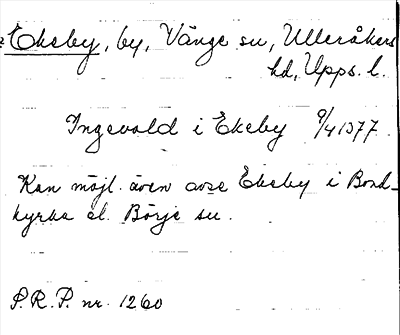 Ekeby, by, Vänge sn, Ulleråkers
hd, Upps. l.
Ingevald i Ekeby 9/4 1377.
Kan möjl. även avse Ekeby i Bond-
kyrka el. Börje sn.
P.R.P. nr. 1260